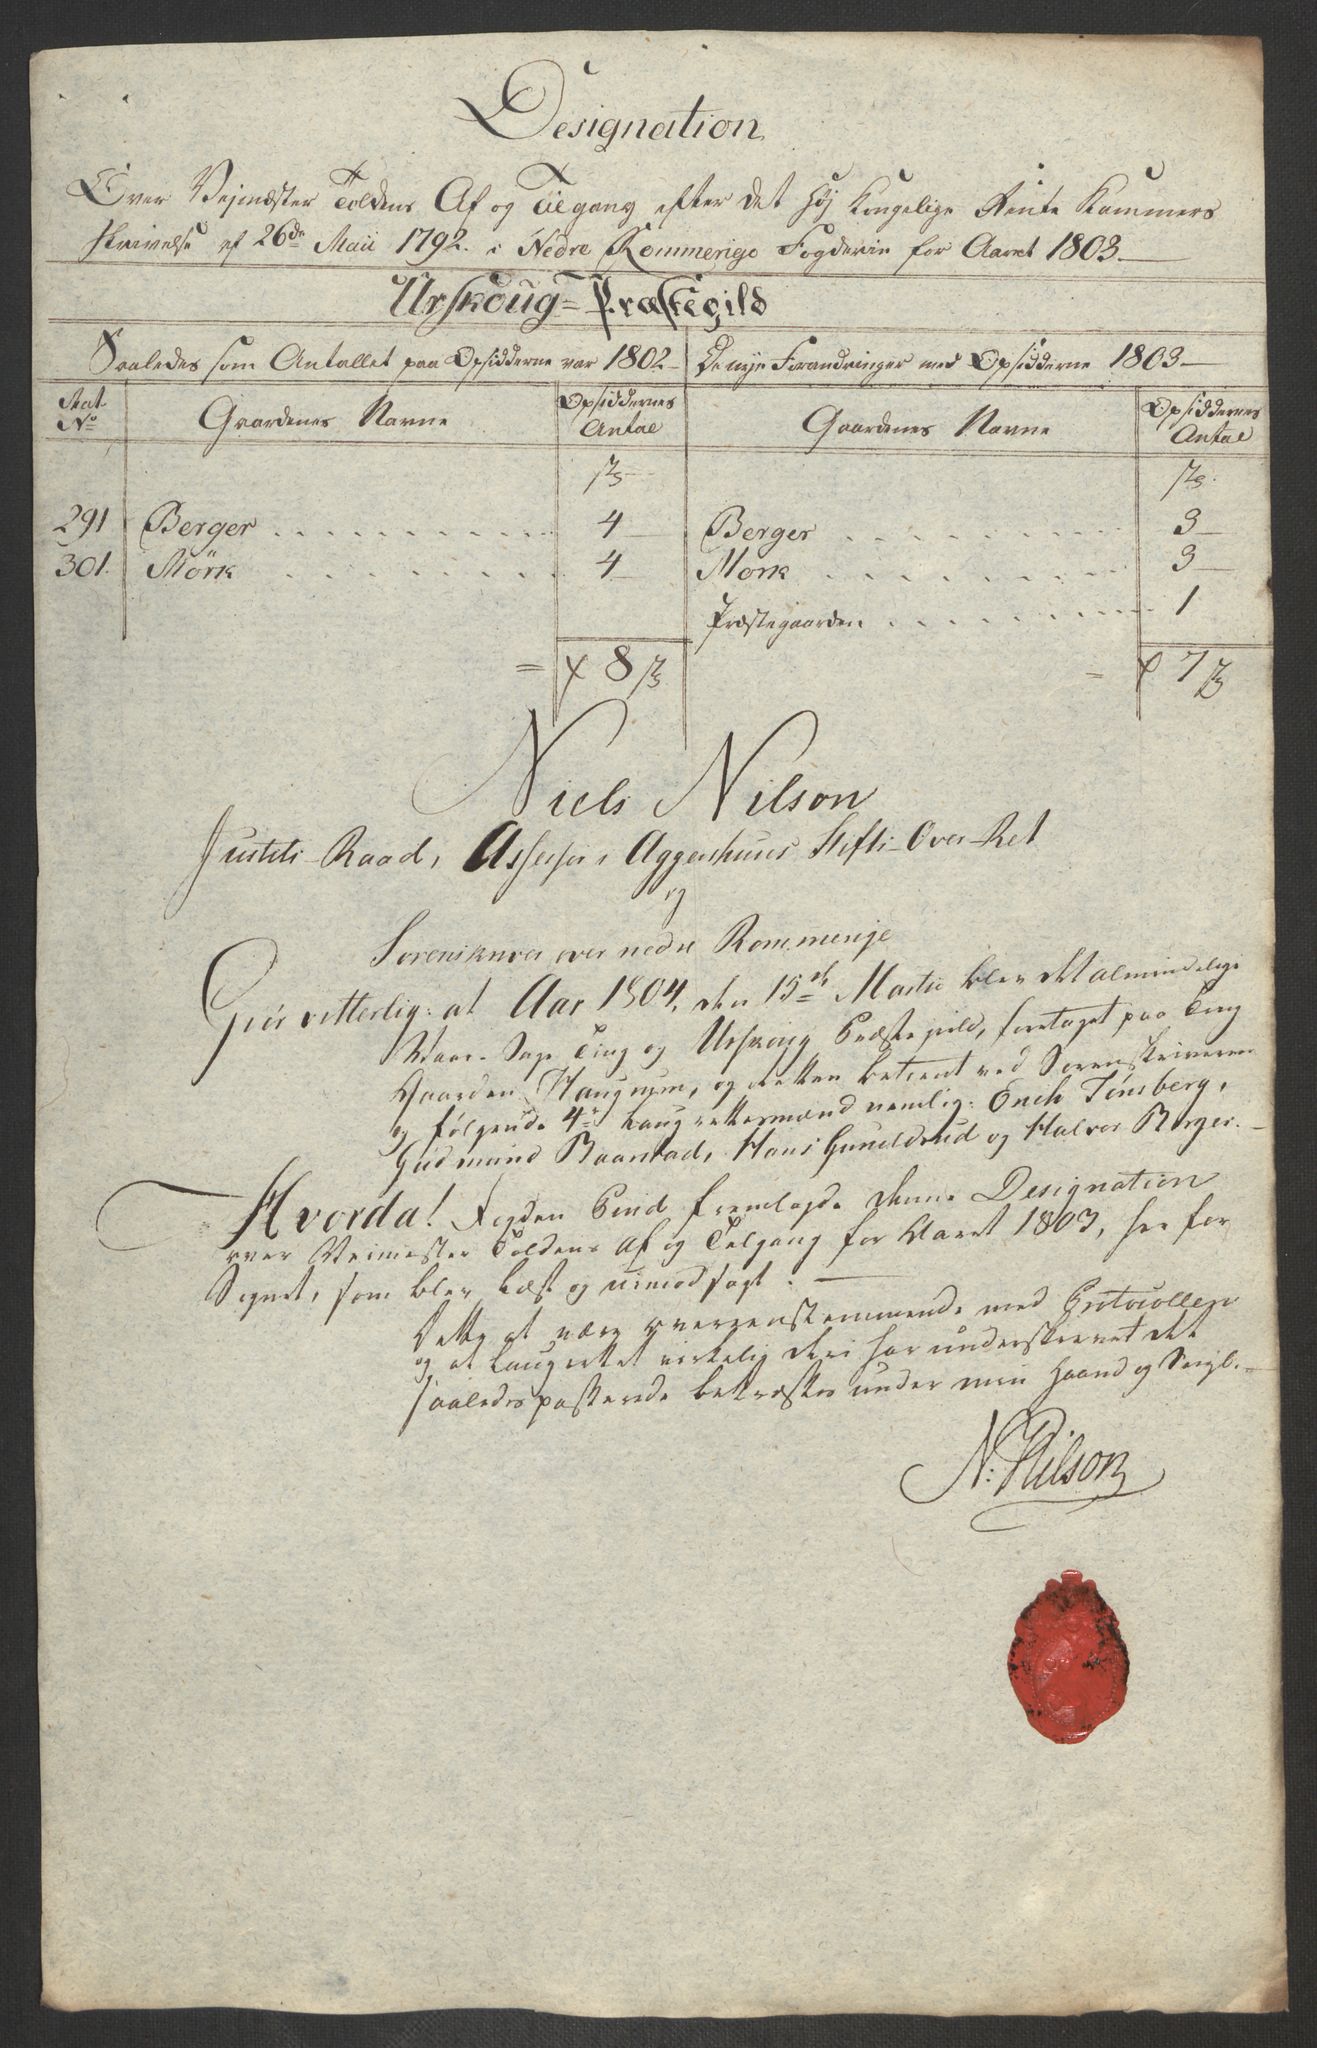 Designation
Over Vejmæster Toldens Af og Tilgang efter det Høj Kongelige Rente Kammers
skrivelse af 26de Maii 1792. i Nedre Rommerige Fogderie for Aaret 1803.
Urskoug=Præstegild
Saaledes som Antallet paa Opsidderne var 1802 De nye Forandringer med Opsidderne 1803
Mat No Gaardenes Navne Opsiddernes Antal Gaardenes Navne Opsiddernes Antal
ß ß
291 Berger 4 Berger 3
301. Mörk 4 Mörk 3
Præstegaarden 1
= 8 ß = 7 ß
Niels Nilson
Justits-Raad, Assessor i Aggershuus Stifts-Over-Ret
og
Sorenskriver over nedre Rommerige
Giør vitterlig: at Aar 1804, den 15de Martii blev det almindelige
Vaar-Sage Ting og Urskoug Præstegild, foretaget paa Ting
Gaarden Haugrum, og Retten betient ved Sorenskriveren
og følgende 4re Laugrettesmænd nemlig: Erich Tønsberg,
Gudmund Baanrud, Hans Guneldrud og Halvor Berger.
Hvorda! Fogden fremlagde denne Designation
over Veimester Toldens Af og Tilgang for Aaret 1803, her for
Sognet, som blev læst og uimodsagt.
Dette at være overeenstemmende med Protocollen
og at Laugrettet virkelig deri har underskrevet det
saaledes passerede bekræftes under min Haand og Seigl.
N: Nilson